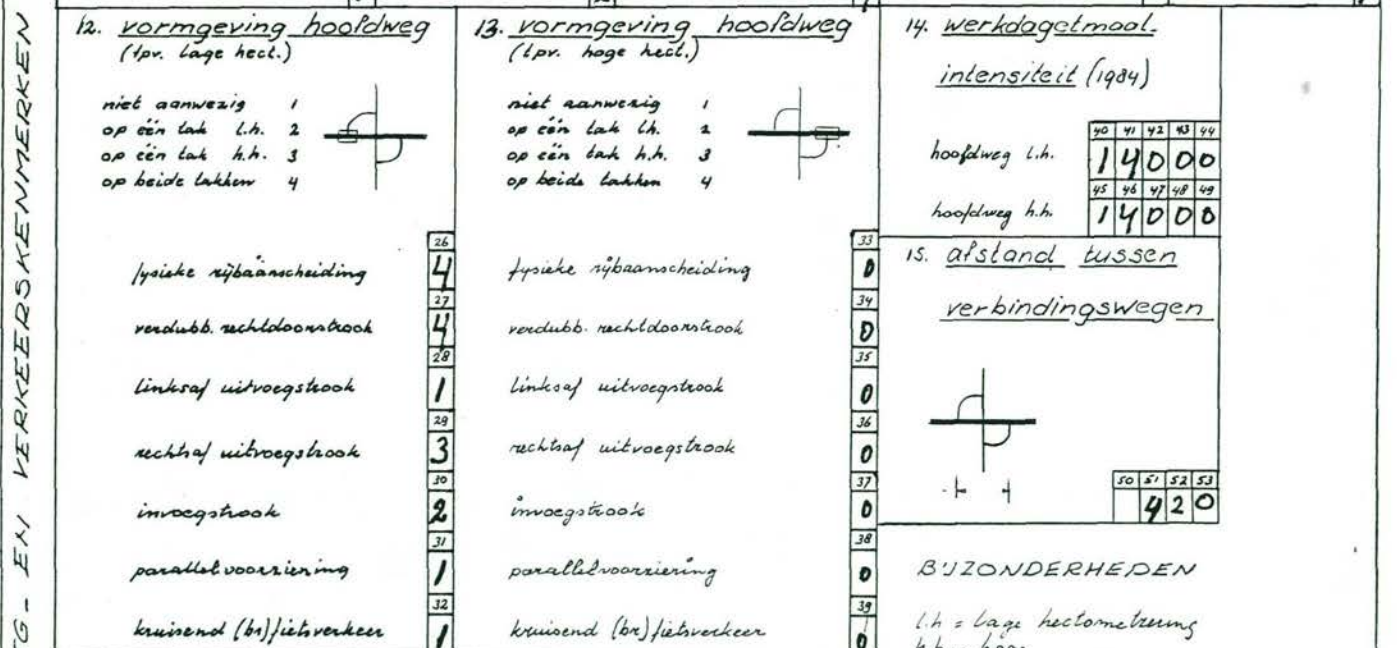 WEG- EN VERKEERSKENMERKEN
12. vormgeving hoofdweg
(tpv. lage hect.)
niet aanwezig 1
op één tak l.h. 2
op één tak h.h. 3
op beide takken 4
26
fysieke rijbaanscheiding 4
27
verdubb. rechtdoorstrook 4
28
linksaf uitvoegstrook 1
29
rechtsaf uitvoegstrook 3
30
invoegstrook 2
31
parallelvoorziening 1
32
kruisend (br) fietsverkeer 1
13. vormgeving hoofdweg
(tpv. hoge hect.)
niet aanwezig 1
op één tak l.h. 2
op één tak h.h. 3
op beide takken 4
33
fysieke rijbaanscheiding 0
34
verdubb. rechtdoorstrook 0
35
linksaf uitvoegstrook 0
36
rechtsaf uitvoegstrook 0
37
invoegstrook 0
38
parallelvoorziening 0
39
kruisend (br) fietsverkeer 0
14. werkdagetmaal-
intensiteit (1984)
40 41 42 43 44
hoofdweg l.h. 1 4 0 0 0
45 46 47 48 49
hoofdweg h.h. 1 4 0 0 0
15. afstand tussen
verbindingswegen
50 51 52 53
4 2 0
BIJZONDERHEDEN
l.h = lage hectometrering